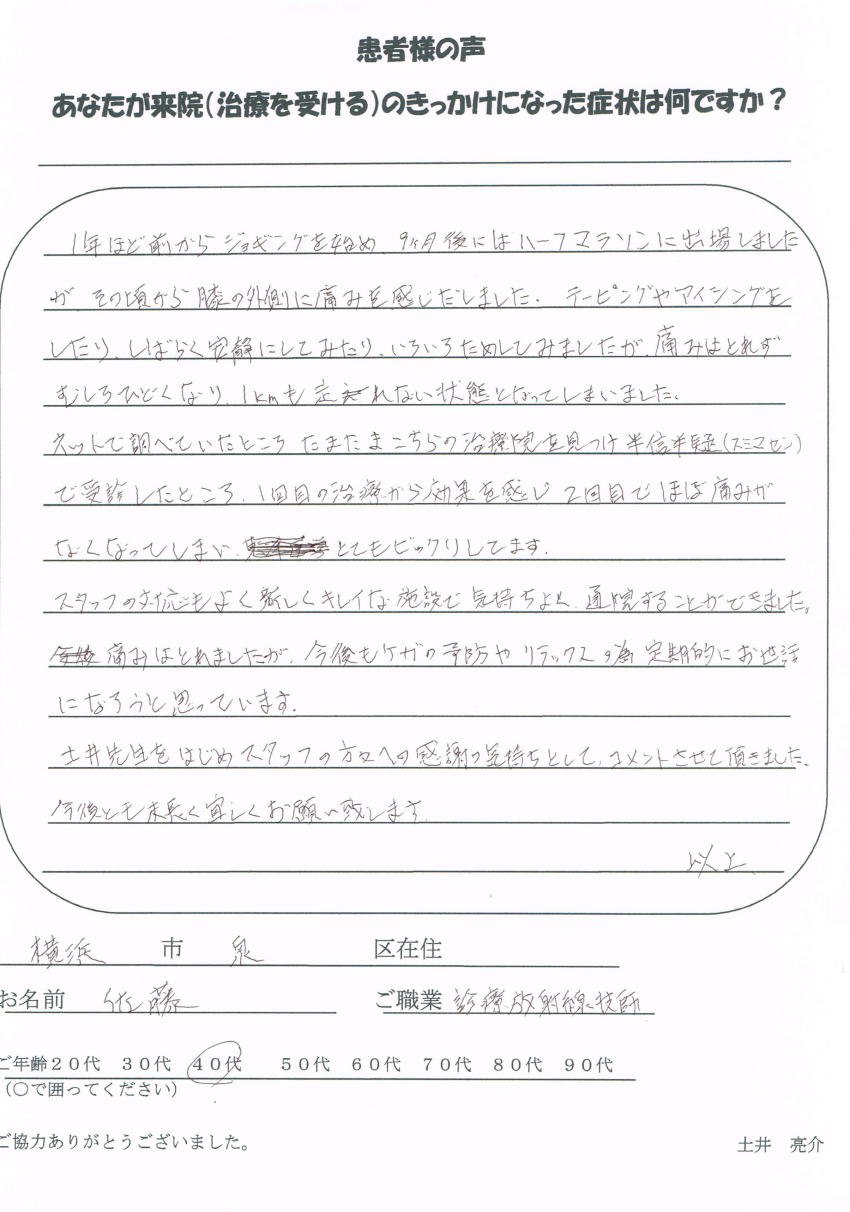 患者様の声
あなたが来院（治療を受ける）のきっかけになった症状は何ですか？
1年ほど前からジョギングを始め 9ヶ月後にはハーフマラソンに出場しました
が その頃から膝の外側に痛みを感じだしました. テーピングやアイシングを
したり、しばらく安静にしてみたり、いろいろためしてみましたが、痛みはとれず
むしろひどくなり、1kmも走れない状態となってしまいました.
ネットで調べていたところ たまたまこちらの治療院を見つけ 半信半疑(スミマセン)
で受診したところ、1回目の治療から効果を感じ 2回目でほぼ痛みが
なくなってしまい、とてもビックリしてます.
スタッフの対応もよく新しくキレイな施設で気持ちよく、通院することができました。
痛みはとれましたが、今後もケガの予防やリラックスの為 定期的にお世話
になろうと思っています.
土井先生をはじめスタッフの方々への感謝の気持ちとして、コメントさせて頂きました.
今後とも末長く宜しくお願い致します.
以上
横浜 市 泉 区在住
お名前 佐藤 ご職業 診療放射線技師
ご年齢２０代 ３０代 ４０代 ５０代 ６０代 ７０代 ８０代 ９０代
（〇で囲ってください）
ご協力ありがとうございました。 土井 亮介